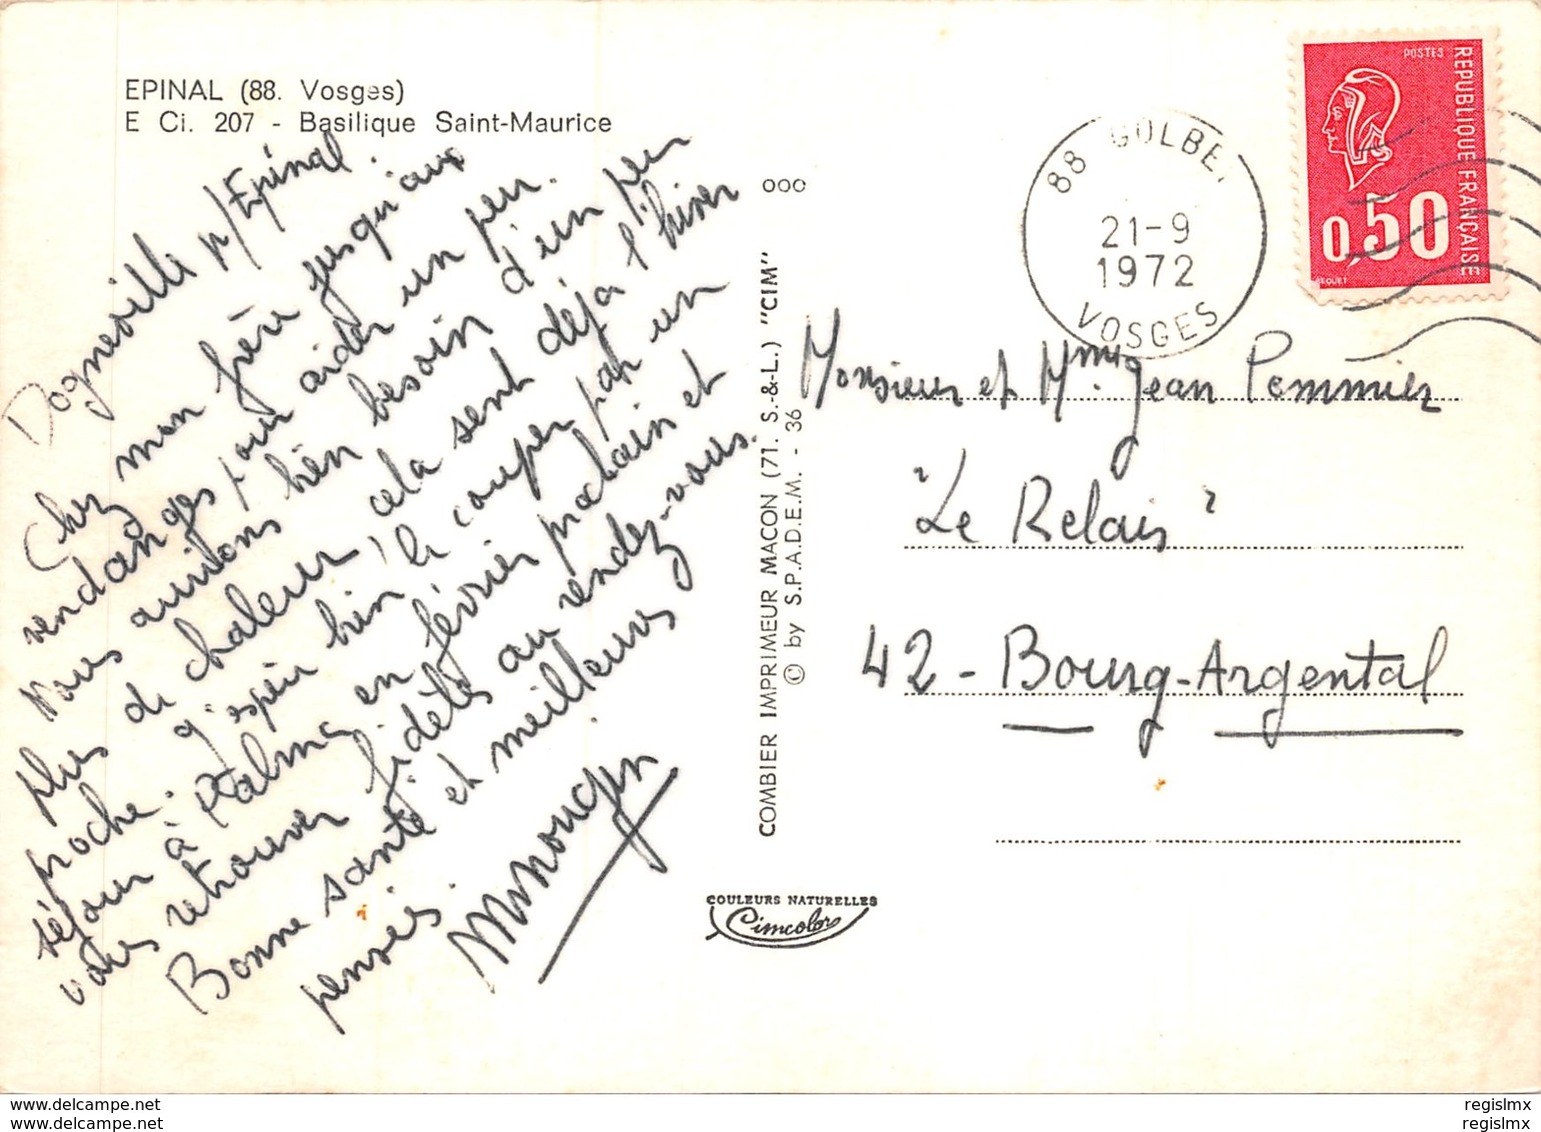 EPINAL (88. Vosges)
E Ci. 207 - Basilique Saint-Maurice
Dogneville p/Epinal.
Chez mon frère jusqu'aux
vendanges pour aider un peu.
Nous aurions bien besoin d'un peu
plus de chaleur, cela sent déjà l'hiver
proche. J'espère bien le couper par un
séjour à Palma en février prochain et
vous retrouver fidèles au rendez-vous.
Bonne santé et meilleures
pensées.
MMougin
COMBIER IMPRIMEUR MACON (71. S.-&-L.) "CIM"
© by S.P.A.D.E.M. - 36
000
COULEURS NATURELLES
Cimcolor
88 GOLBEY
21-9
1972
VOSGES
POSTES
REPUBLIQUE FRANÇAISE
0,50
BEQUET
Monsieur et Mme Jean Pommier
"Le Relais"
42 - Bourg-Argental
www.delcampe.net
www.delcampe.net
regislmx
regislmx